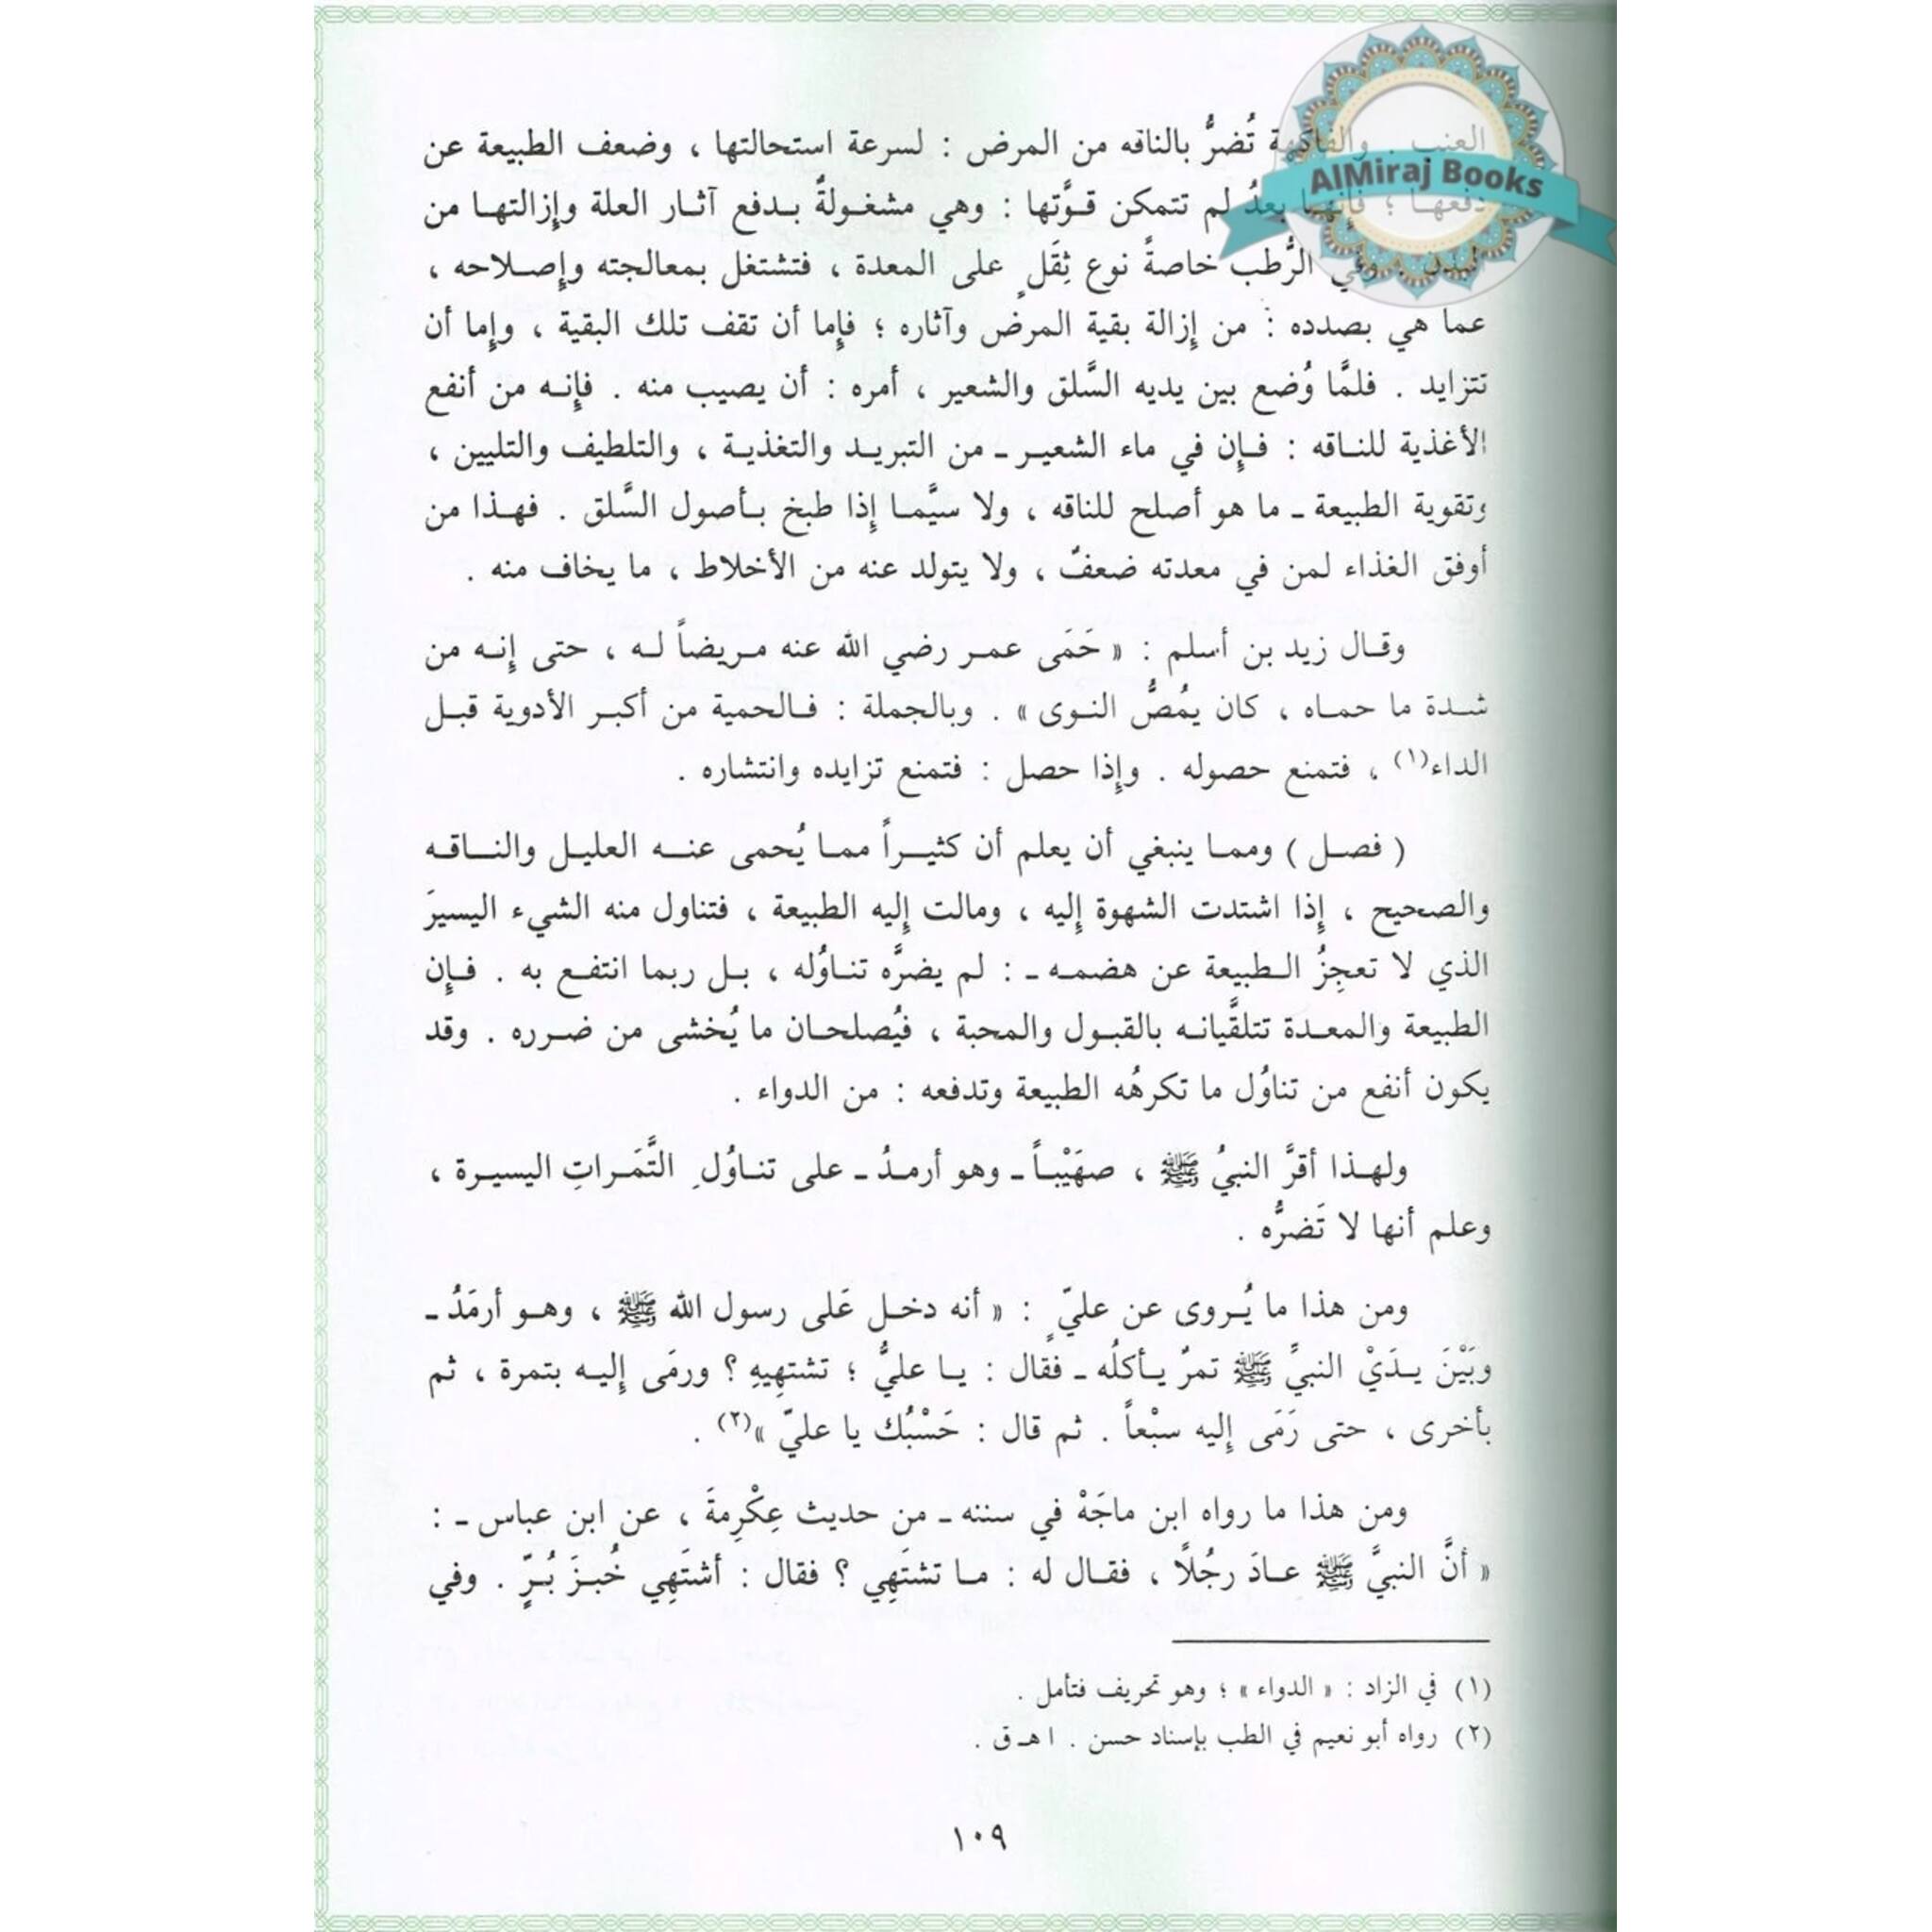 AlMiraj Books
العنب . والفاكهة تُضرُّ بالناقه من المرض : لسرعة استحالتها ، وضعف الطبيعة عن
دفعهـا ؛ فإنهـا بعدُ لم تتمكن قـوَّتها : وهي مشغـولةٌ بـدفع آثـار العلة وإزالتهـا من
الرُّطب خاصةً نوع ثِقَلٍ على المعدة ، فتشتغل بمعالجته وإصـلاحه ،
عما هي بصدده : من إزالة بقية المرض وآثاره ؛ فإما أن تقف تلك البقية ، وإما أن
تتزايد . فلمَّا وُضع بين يديه السَّلق والشعير ، أمره : أن يصيب منه . فإنـه من أنفع
الأغذية للنـاقه : فـإن في ماء الشعيـر ـ من التبريـد والتغذيـة ، والتلطيف والتليين ،
وتقوية الطبيعة ـ ما هو أصلح للناقه ، ولا سيَّمـا إذا طبخ بـأصول السَّلق . فهـذا من
أوفق الغذاء لمن في معدته ضعفٌ ، ولا يتولد عنه من الأخلاط ، ما يخاف منه .
وقـال زيد بن أسلم : « حَمَى عمـر رضي الله عنه مـريضاً لـه ، حتى إنـه من
شـدة ما حمـاه ، كان يمُصُّ النـوى » . وبالجملة : فـالحمية من أكبـر الأدوية قبـل
الداء(١) ، فتمنع حصوله . وإذا حصل : فتمنع تزايده وانتشاره .
( فصـل ) وممـا ينبغي أن يعلم أن كثيـراً ممـا يُحمى عنـه العليـل والنـاقـه
والصحيح ، إذا اشتدت الشهوة إليه ، ومالت إليه الطبيعة ، فتناول منه الشيء اليسيرَ
الذي لا تعجِزُ الـطبيعة عن هضمـه ـ : لم يضرَّه تنـاوُله ، بـل ربما انتفـع به . فـإن
الطبيعة والمعـدة تتلقَّيانـه بالقبـول والمحبة ، فيُصلحـان ما يُخشى من ضـرره . وقد
يكون أنفع من تناوُل ما تكرهُه الطبيعة وتدفعه : من الدواء .
ولهـذا أقرَّ النبيُ ﷺ ، صهَيْبـاً ـ وهو أرمـدُ ـ على تنـاوُلِ التَّمَـراتِ اليسيـرة ،
وعلم أنها لا تَضرُّه .
ومن هذا ما يُـروى عن عليّ ٍ : « أنه دخـل عَلى رسول الله ﷺ ، وهـو أرمَدُ ـ
وبَيْنَ يـدَيْ النبيِّ ﷺ تمرٌ يـأكلُه ـ فقال : يـا عليُّ ؛ تشتهِيهِ ؟ ورمَى إليـه بتمرة ، ثم
بأخرى ، حتى رَمَى إليه سبْعاً . ثم قال : حَسْبُك يا عليّ »(٢) .
ومن هذا ما رواه ابن ماجَهْ في سننه ـ من حديث عِكْرِمةَ ، عن ابن عباس ـ :
« أنَّ النبيَّ ﷺ عـادَ رجُلًا ، فقـال له : مـا تشتَهِي ؟ فقال : أشتَهِي خُبـزَ بُـرٍّ . وفي
(١) في الزاد : « الدواء » ؛ وهو تحريف فتأمل .
(٢) رواه أبو نعيم في الطب بإسناد حسن . ا هـ ق .
١٠٩